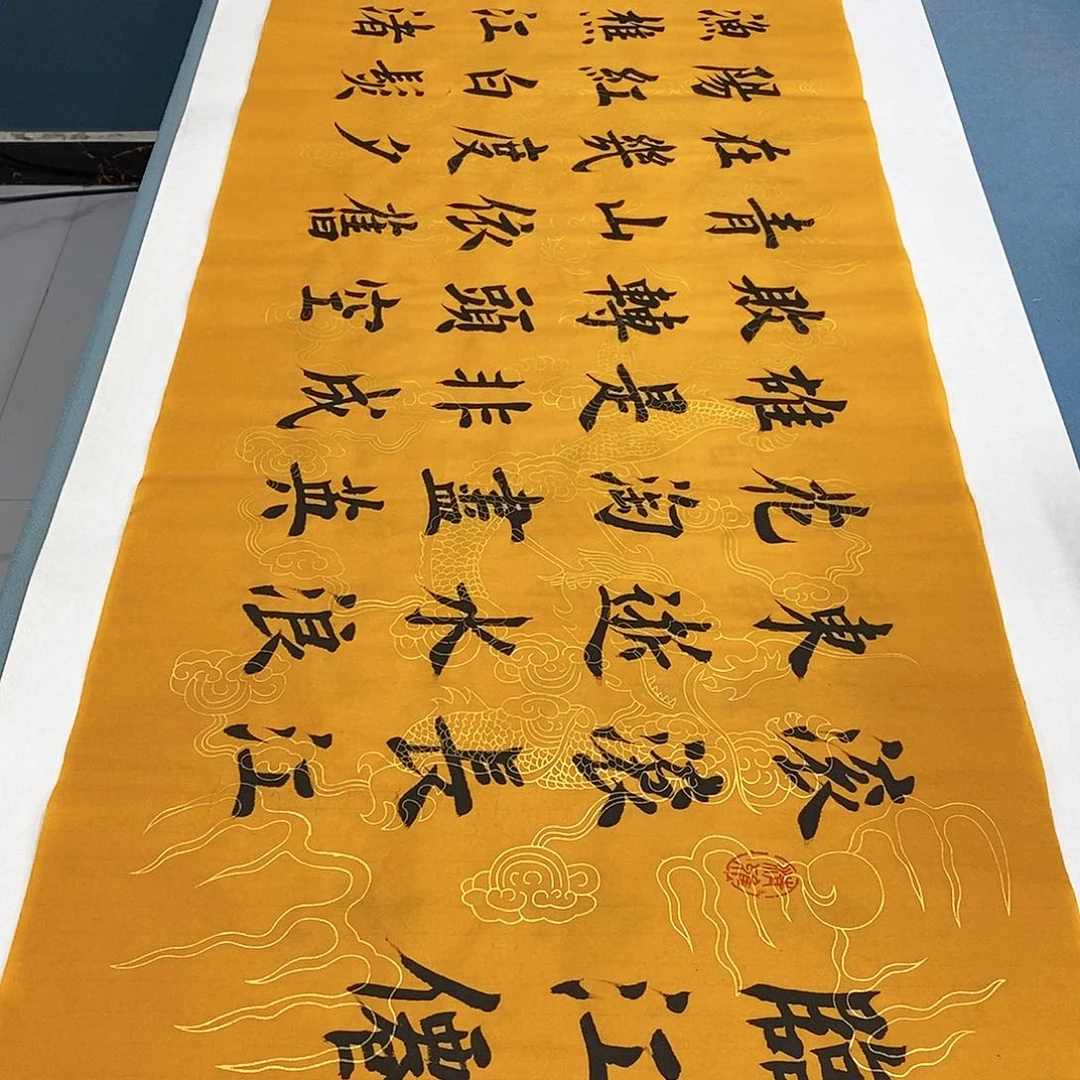 臨江僊
滾滾長江
東逝水浪
花淘盡英
雄是非成
敗轉頭空
青山依舊
在幾度夕
陽紅白髮
漁樵江渚